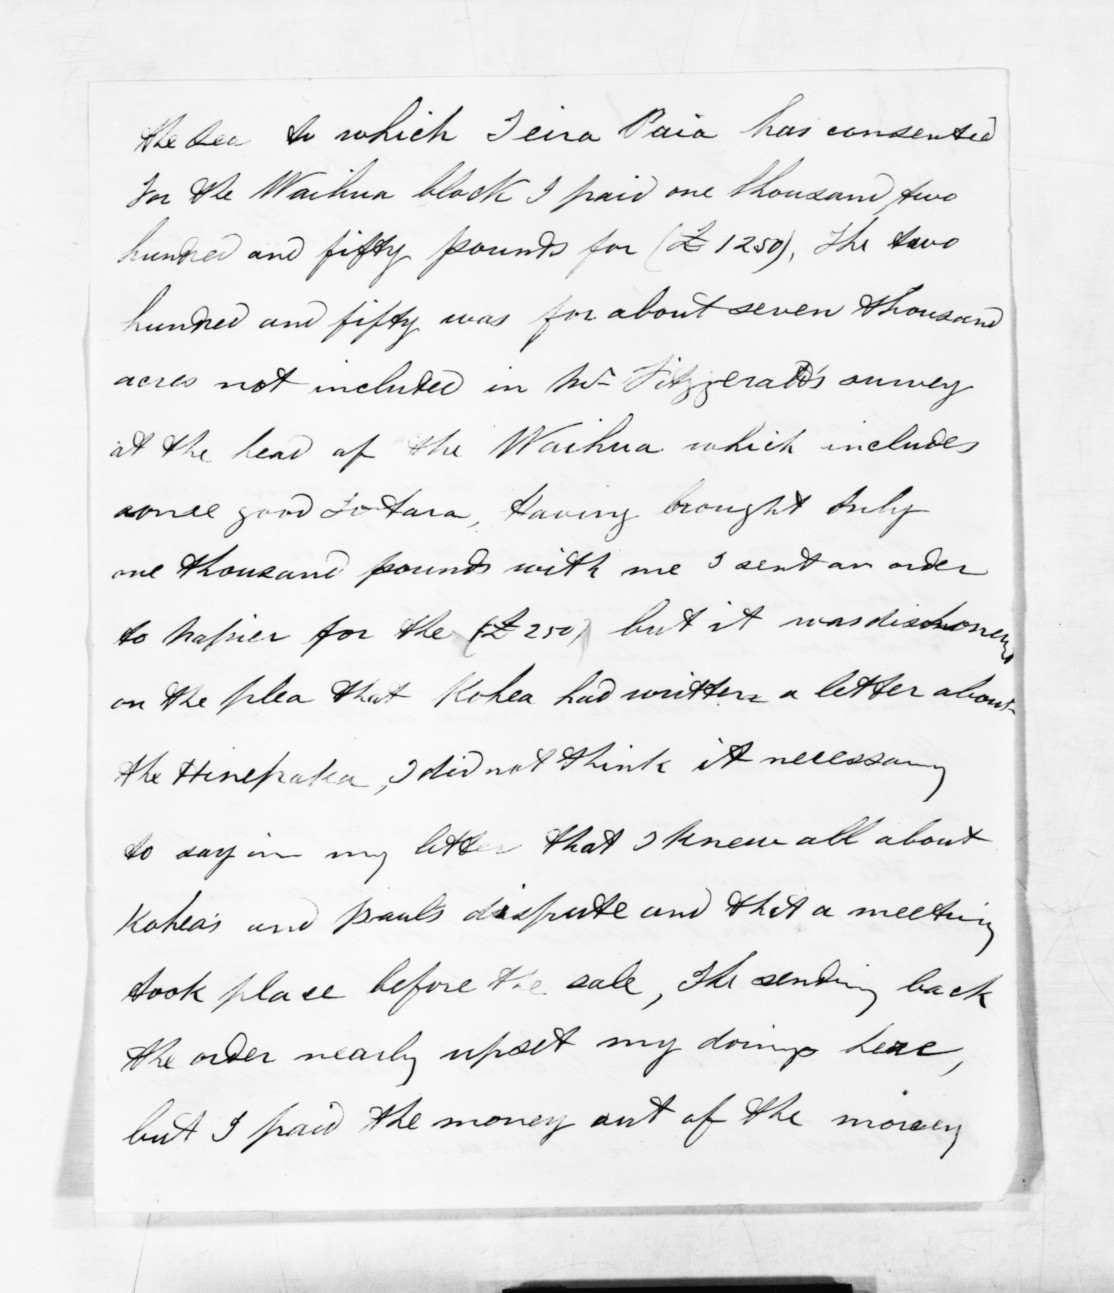 the sea to which Teira Paia has consented
For the Waihua block I paid one thousand, two
hundred and fifty pounds for (£1250), The two
hundred and fifty was for about seven thousand
acres not included in Mr Fitzgerald's survey
at the head of the Waihua which includes
some good Totara, Having brought only
one thousand pounds with me I sent an order
to Napier for the (£250) but it was dishonored
on the plea that Kohea had written a letter about
the Hinepaka, I did not think it necessary
to say in my letter that I knew all about
Kohea's and Paul's dispute and that a meeting
took place before the sale, The sending back
the order nearly upset my doings here,
but I paid the money out of the money